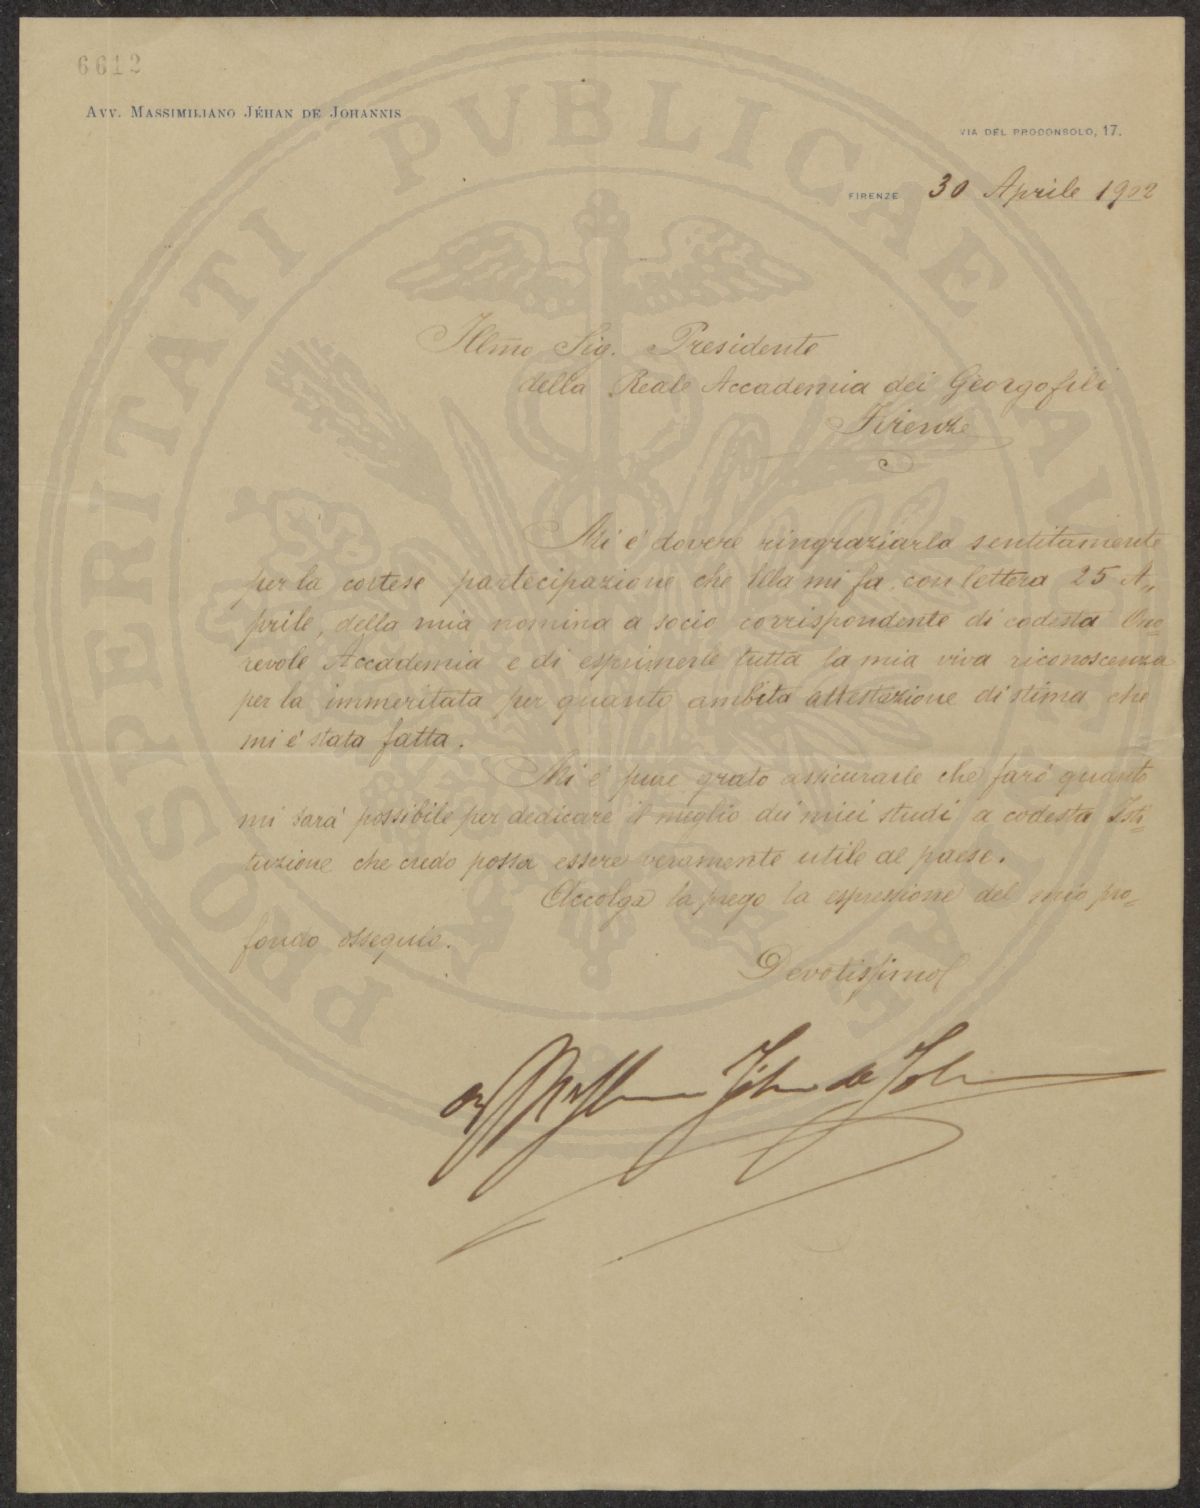 6612
AVV. MASSIMILIANO JÉHAN DE JOHANNIS
VIA DEL PROCONSOLO, 17.
FIRENZE 30 Aprile 1902
PROSPERITATI PVBLICAE AVGENDAE
Illmo Sig. Presidente
della Reale Accademia dei Georgofili
Firenze
Mi è dovere ringraziarla sentitamente
per la cortese partecipazione che Ella mi fa, con lettera 25 A„
prile, della mia nomina a socio corrispondente di codesta Ono=
revole Accademia e di esprimerle tutta la mia viva riconoscenza
per la immeritata per quanto ambita attestazione di stima che
mi è stata fatta.
Mi è pure grato assicurarle che farò quanto
mi sarà possibile per dedicare il meglio dei miei studi a codesta Isti=
tuzione che credo possa essere veramente utile al paese.
Accolga la prego la espressione del mio pro=
fondo ossequio.
Devotissimo